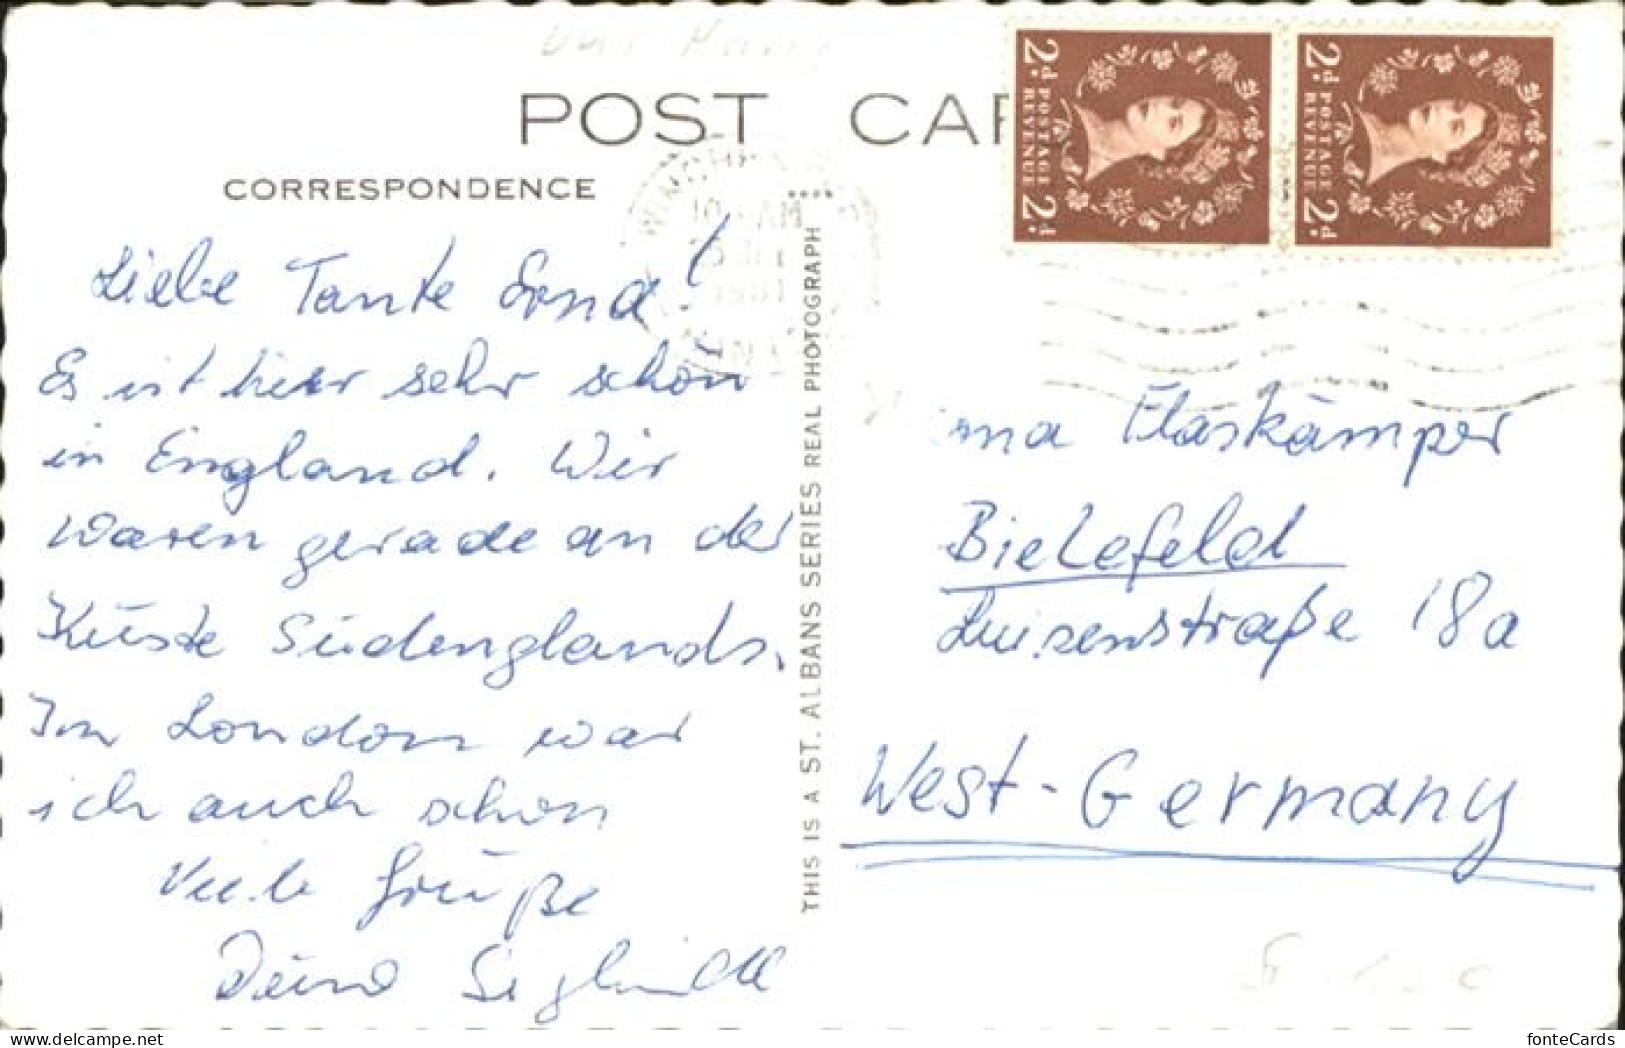 POST CAR
CORRESPONDENCE
Liebe Tante Erna!
Es ist hier sehr schön
in England. Wir
waren gerade an der
Küste Südenglands.
In London war
ich auch schon
Viele Grüße
Deine Sieglinde
THIS IS A ST. ALBANS SERIES REAL PHOTOGRAPH
2d POSTAGE REVENUE 2d
2d POSTAGE REVENUE 2d
Flaskämper
Bielefeld
Luisenstraße 18a
West-Germany
fonteCards